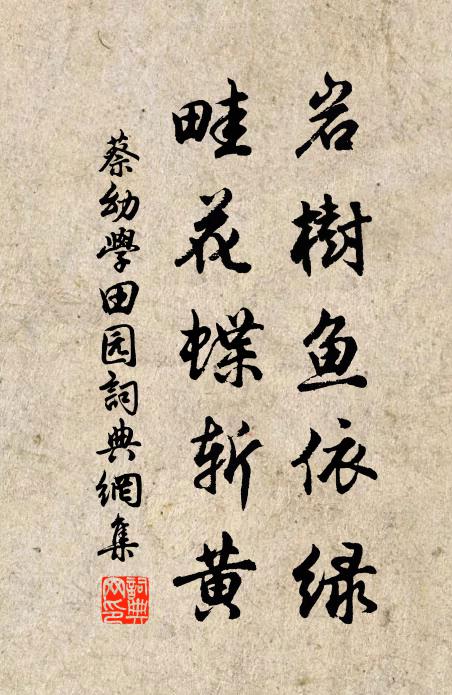 岩樹鱼依绿
畦花蝶斩黄
蔡幼學田园詞典網集
詞典网印